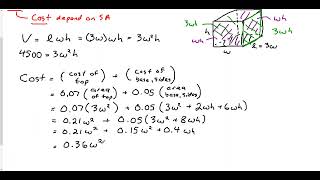 Cost depend on SA
V = l w h = (3w) w h = 3w²h
4500 = 3w²h
Cost = (cost of top) + (cost of base, sides)
= 0.07 (area of top) + 0.05 (area base, sides)
= 0.07 (3w²) + 0.05 (3w² + 2wh + 6wh)
= 0.21w² + 0.05 (3w² + 8wh)
= 0.21w² + 0.15w² + 0.4wh
= 0.36w²
3w
wh
3wh
h
w
l = 3w